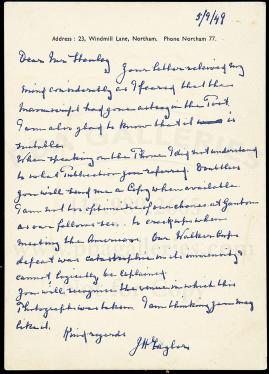 5/9/49
Address : 23, Windmill Lane, Northam. Phone Northam 77.
Dear Mr Stanley
Your letter relieved my
mind considerably as I feared that the
Manuscript had gone astray in the Post
I am also glad to know that it is
suitable.
When speaking on the Phone I did not understand
to what Publication you referred. Doubtless
you will send me a Copy when available
I am not too optimistic of our chances at Ganton
as our fellows seem to crack up when
meeting the Americans. Our Walker Cup
defeat was catastrophic in its immensity
cannot logically be explained.
You will recognise the venue in which this
Photograph was taken. I am thinking you may
like it.
Kind regards
J H Taylor